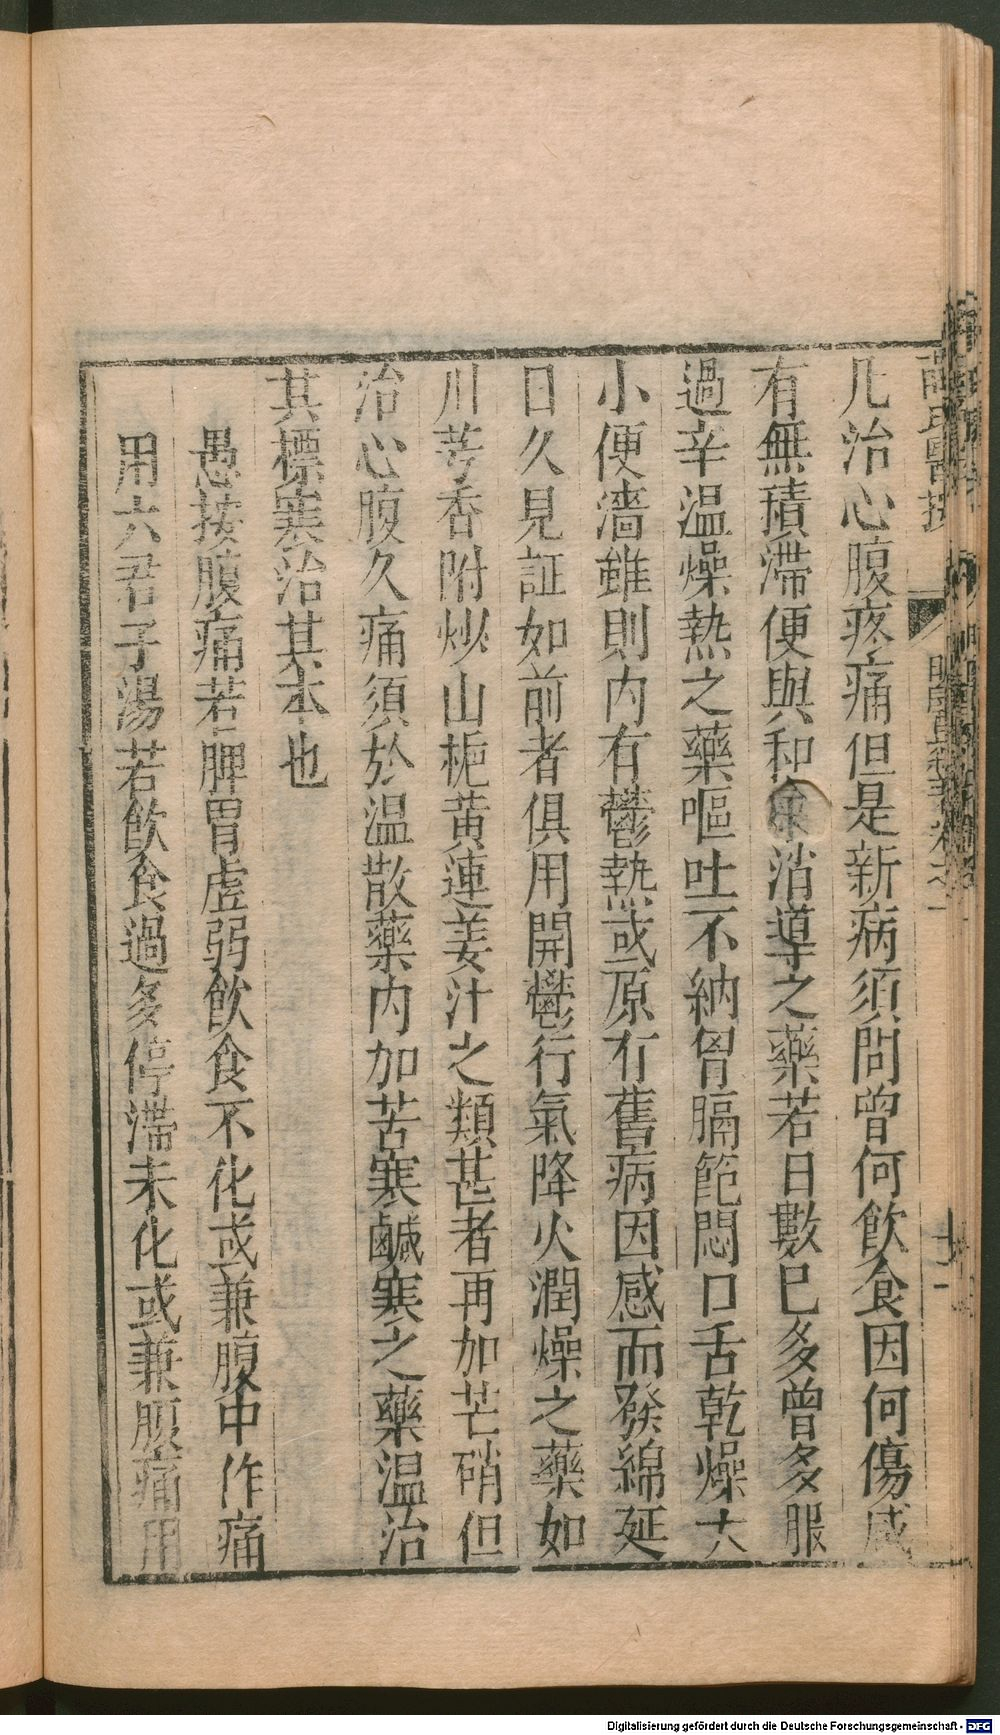 薛氏醫按
凡治心腹疼痛但是新病須問曾何飲食因何傷感
有無積滯便與和消導之藥若日數已多曾多服
過辛温燥熱之藥嘔吐不納胷膈飽悶口舌乾燥大
小便濇雖則内有鬱熱或原有舊病因感而發綿延
日久見証如前者俱用開鬱行氣降火潤燥之藥如
川芎香附炒山梔黄連姜汁之類甚者再加芒硝但
治心腹久痛須於温散藥内加苦寒鹹寒之藥温治
其標寒治其本也
愚按腹痛若脾胃虚弱飲食不化或兼腹中作痛
用六君子湯若飲食過多停滯未化或兼腹痛用
Digitalisierung gefördert durch die Deutsche Forschungsgemeinschaft - DFG